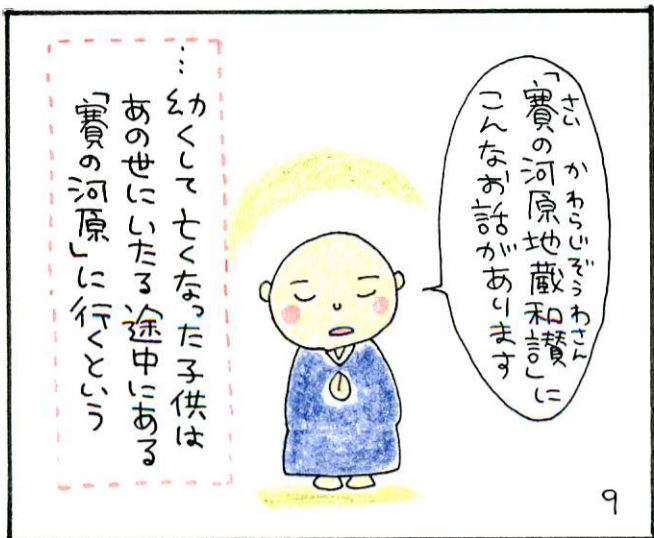 「賽の河原地蔵和讃」に
さい かわらじぞうわさん
こんなお話があります
…幼くして亡くなった子供は
あの世にいたる途中にある
「賽の河原」に行くという
9